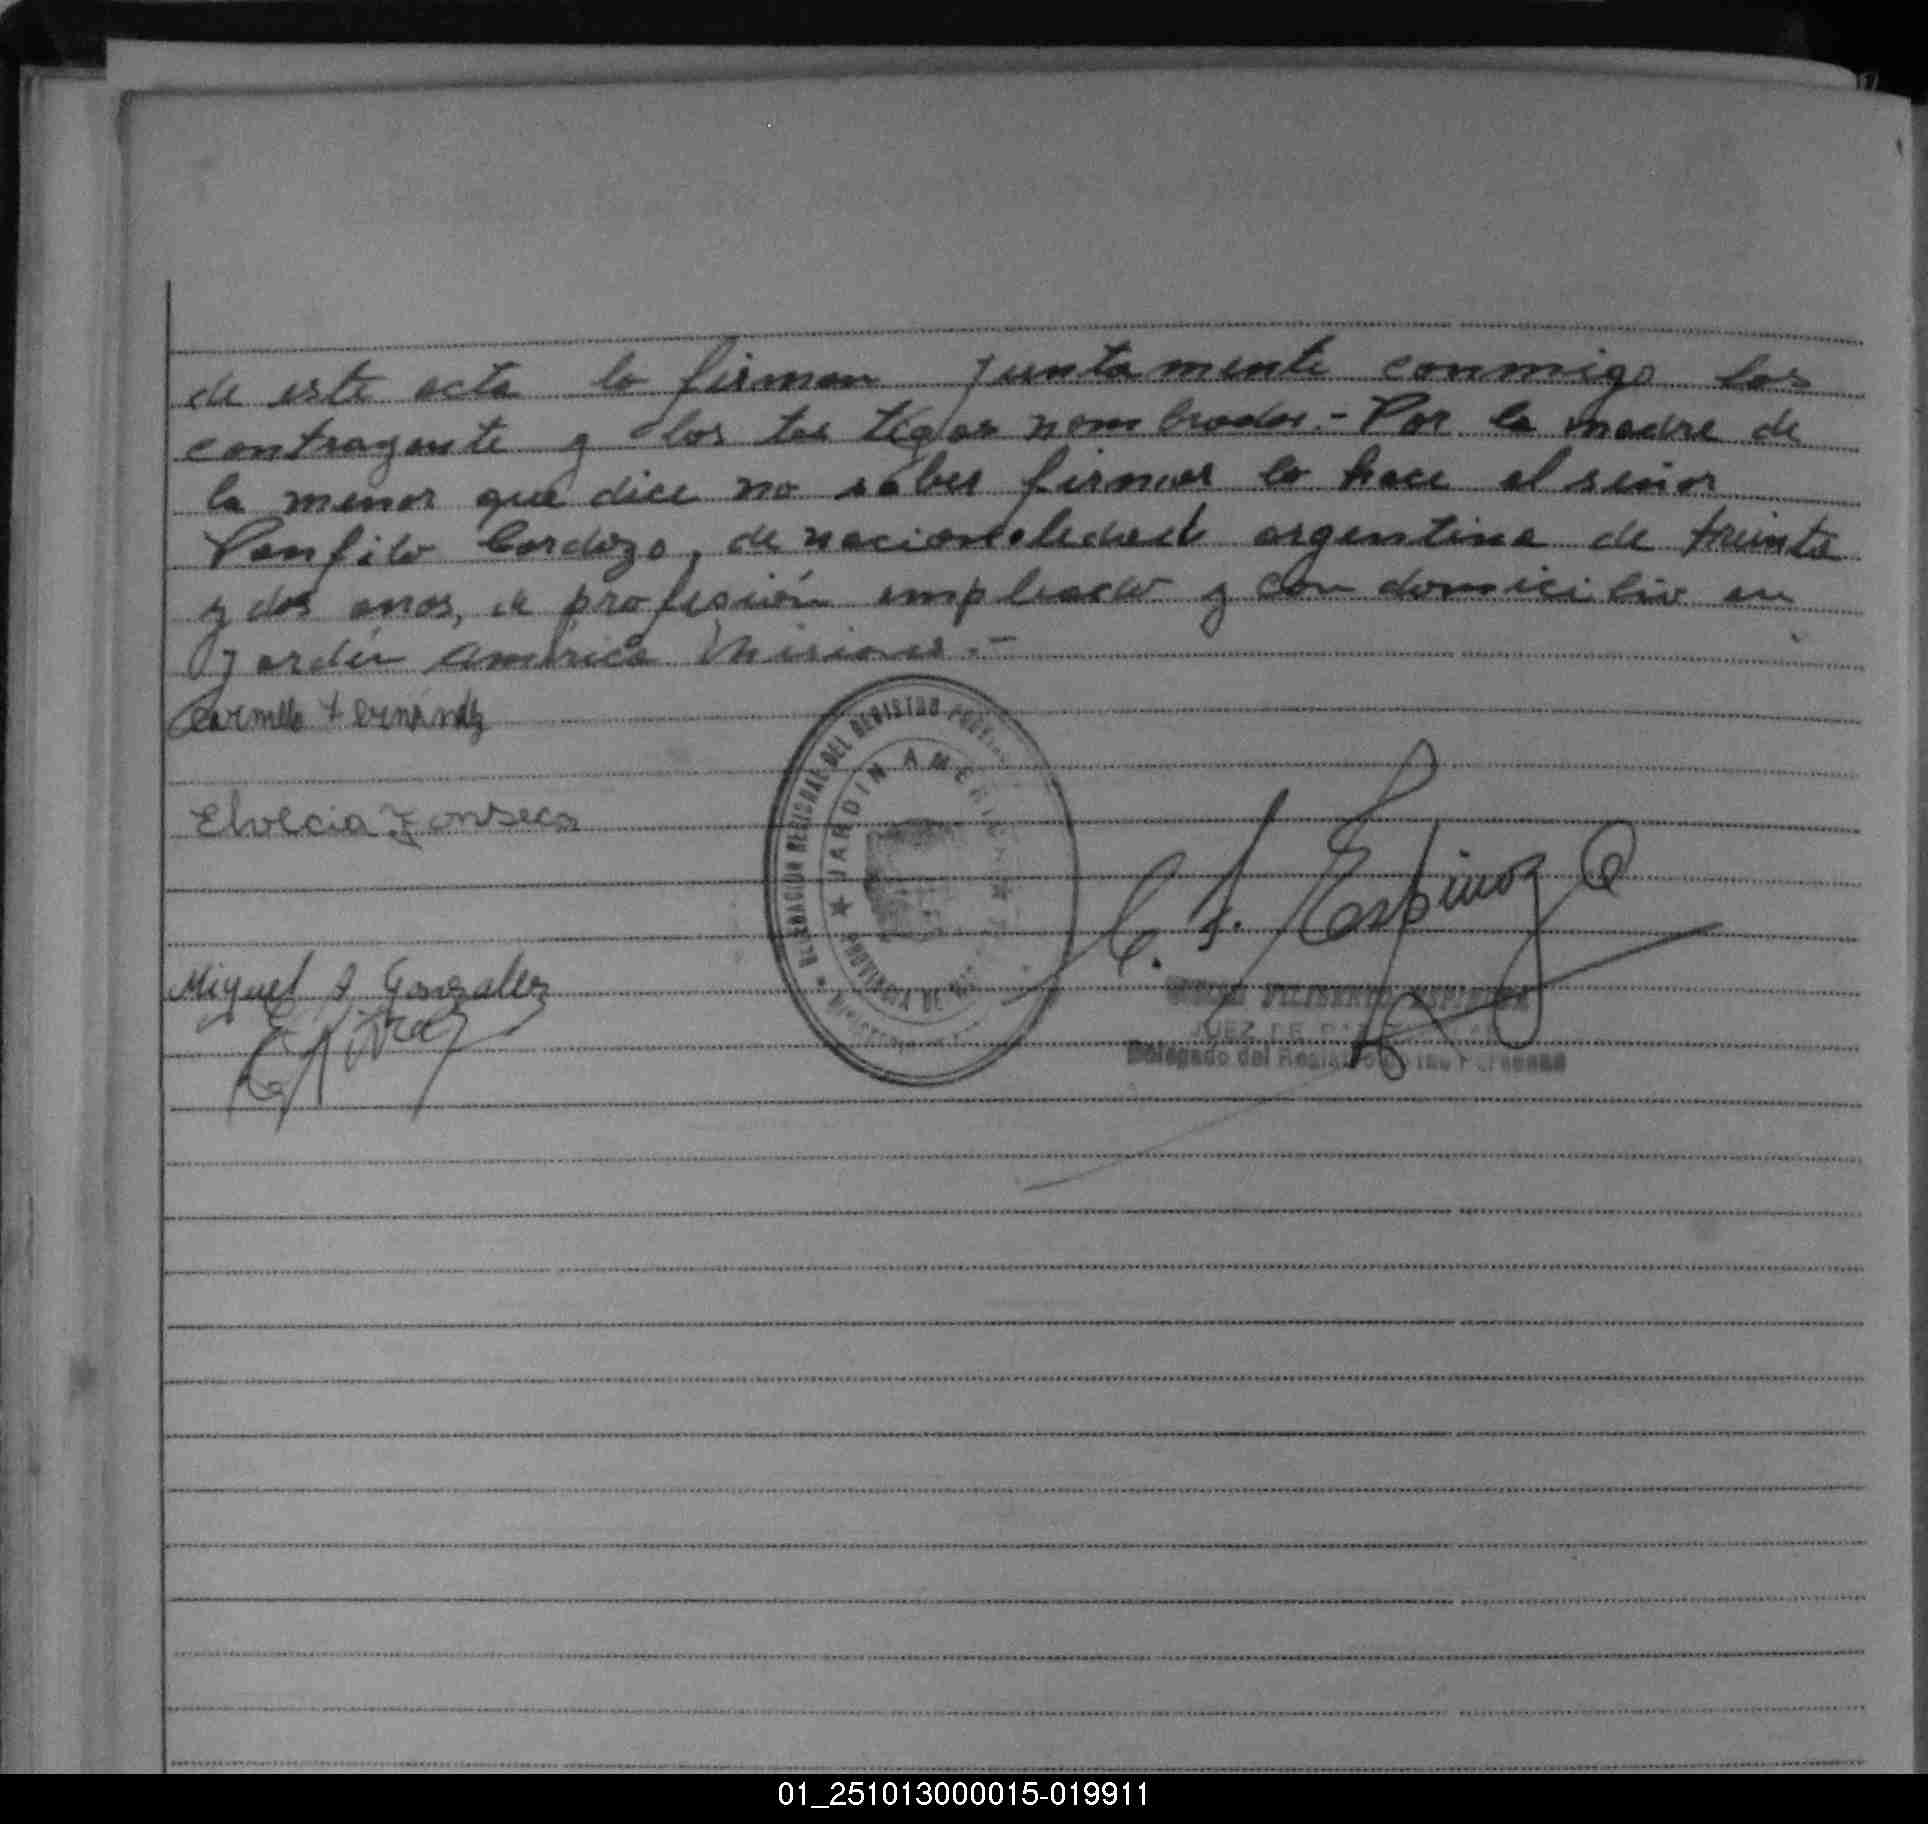 de este acta lo firman juntamente conmigo los
contrayente y los testigos nombrados.- Por la madre de
la menor que dice no saber firmar lo hace el señor
Panfilo Cardozo, de nacionalidad argentina de treinta
y dos anos, de profesión empleado y con domicilio en
Jardín América Misiones.-
Carmelo Fernández
DELEGACION REGIONAL DEL REGISTRO
★ JARDIN AMERICA
Elvecia Fonseca
C. F. Espinoza
Miguel A Gonzalez
FILIBERTO ESPINOZA
JUEZ DE PAZ
Delegado del Registro de las Personas
01_251013000015-019911